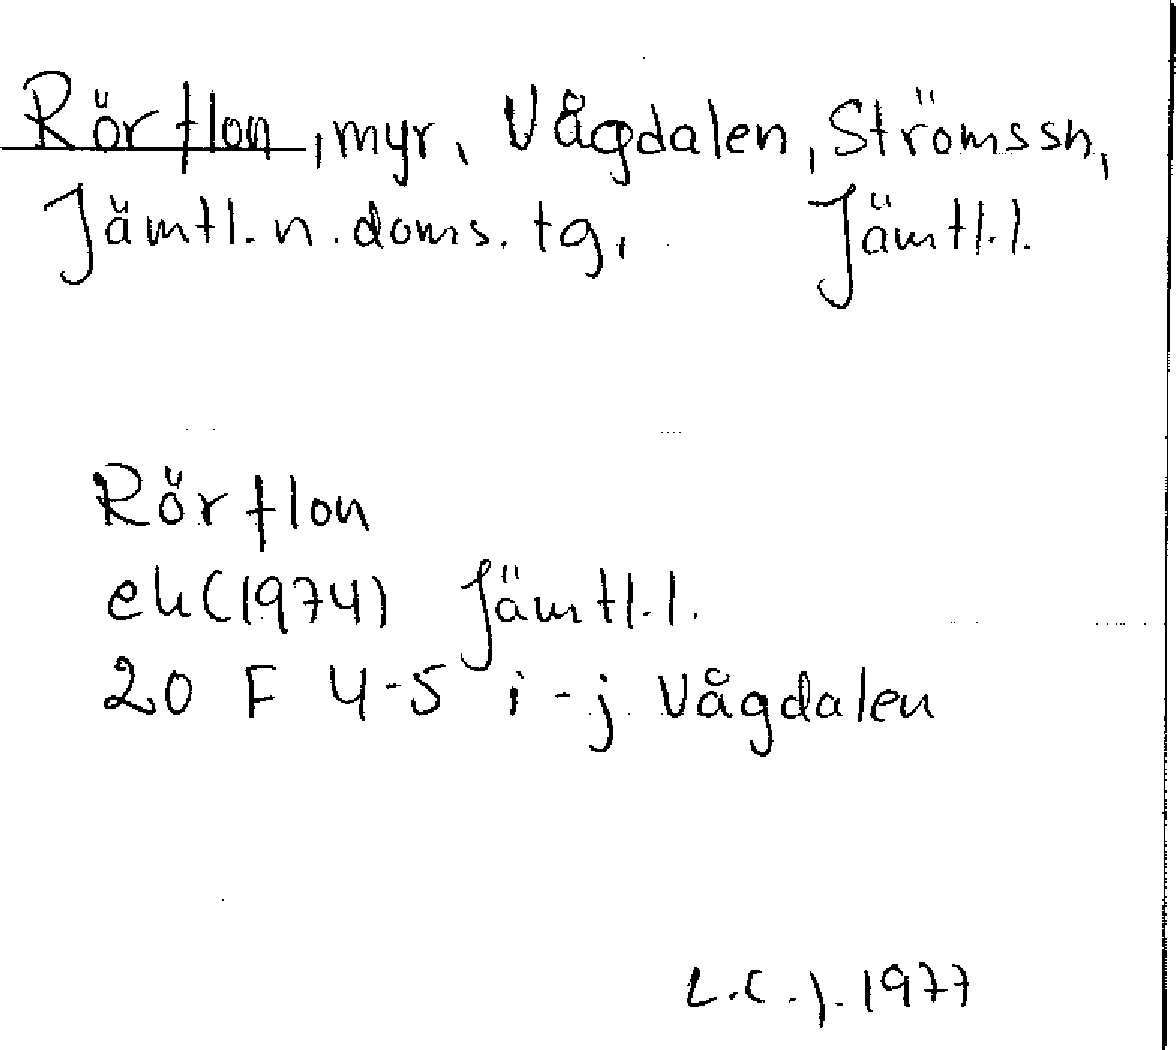 Rörflon, myr, Vågdalen, Strömssn,
Jämtl. n. doms. tg, Jämtl. l.
Rörflon
ek (1974) Jämtl. l.
20 F 4-5 i-j Vågdalen
L.C.J. 1977